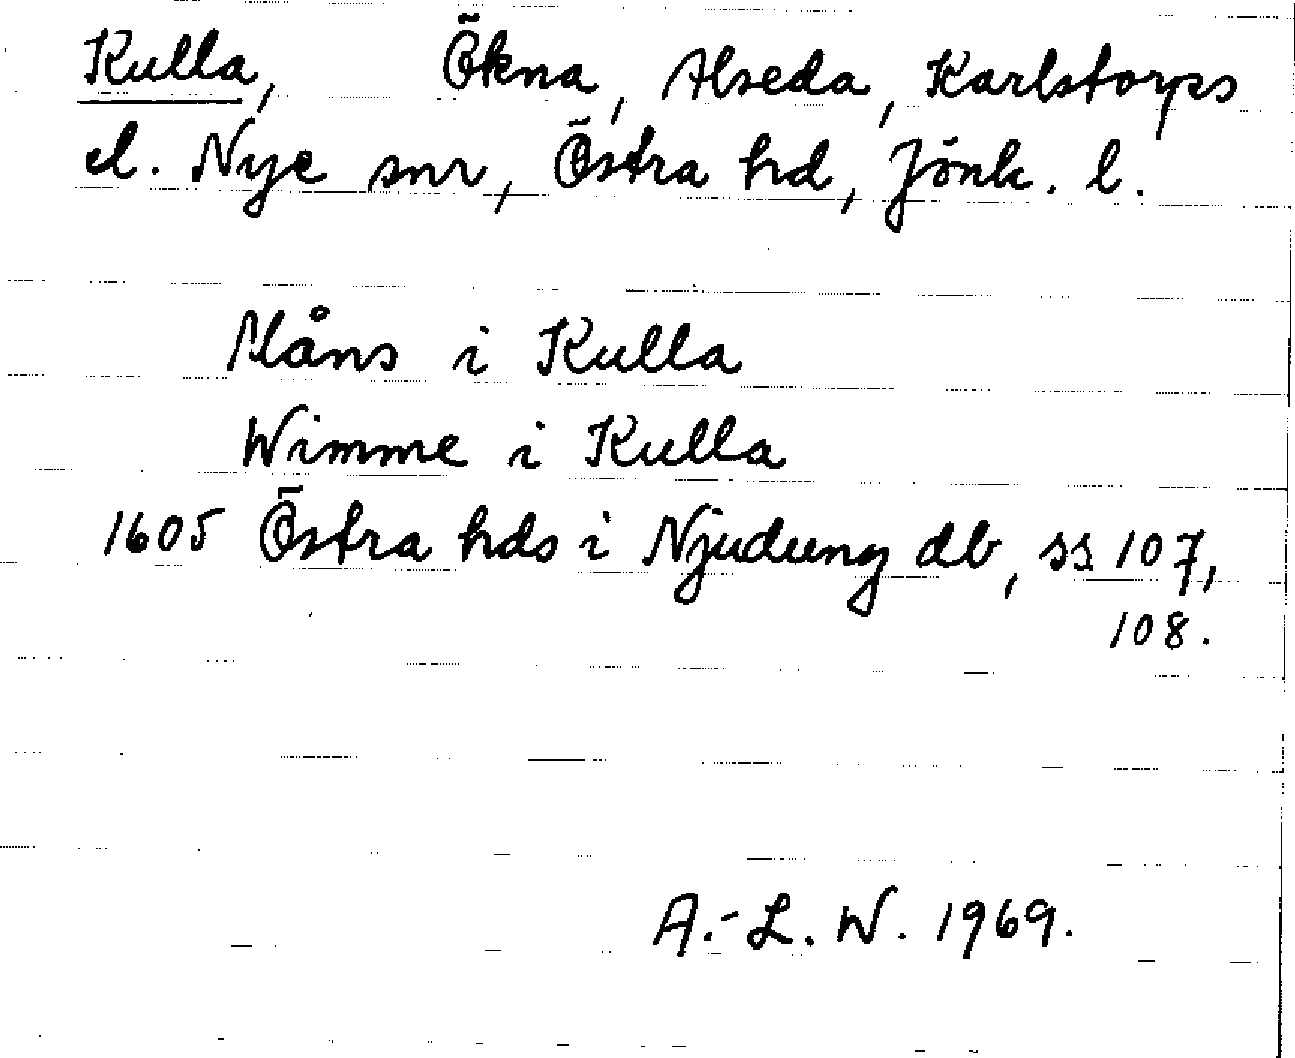 Kulla, Ökna, Alseda, Karlstorps
el. Nye snr, Östra hd, Jönk. l.
Måns i Kulla
Wimme i Kulla
1605 Östra hds i Njudung db, ss 107,
108.
A.-L. W. 1969.